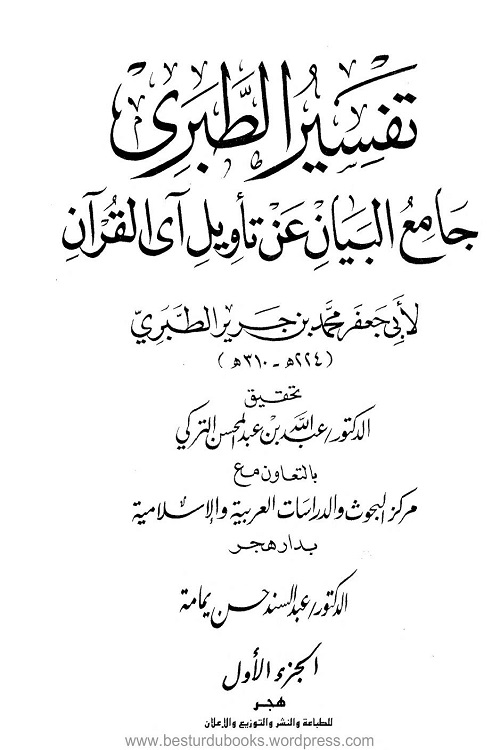 تفسير الطبري
جامع البيان عن تأويل آي القرآن
لأبي جعفر محمد بن جرير الطبري
(٢٢٤هـ - ٣١٠هـ)
تحقيق
الدكتور/عبد الله بن عبد المحسن التركي
بالتعاون مع
مركز البحوث والدراسات العربية والإسلامية
بدار هجر
الدكتور/عبد السند حسن يمامة
الجزء الأول
هجر
للطباعة والنشر والتوزيع والإعلان
www.besturdubooks.wordpress.com